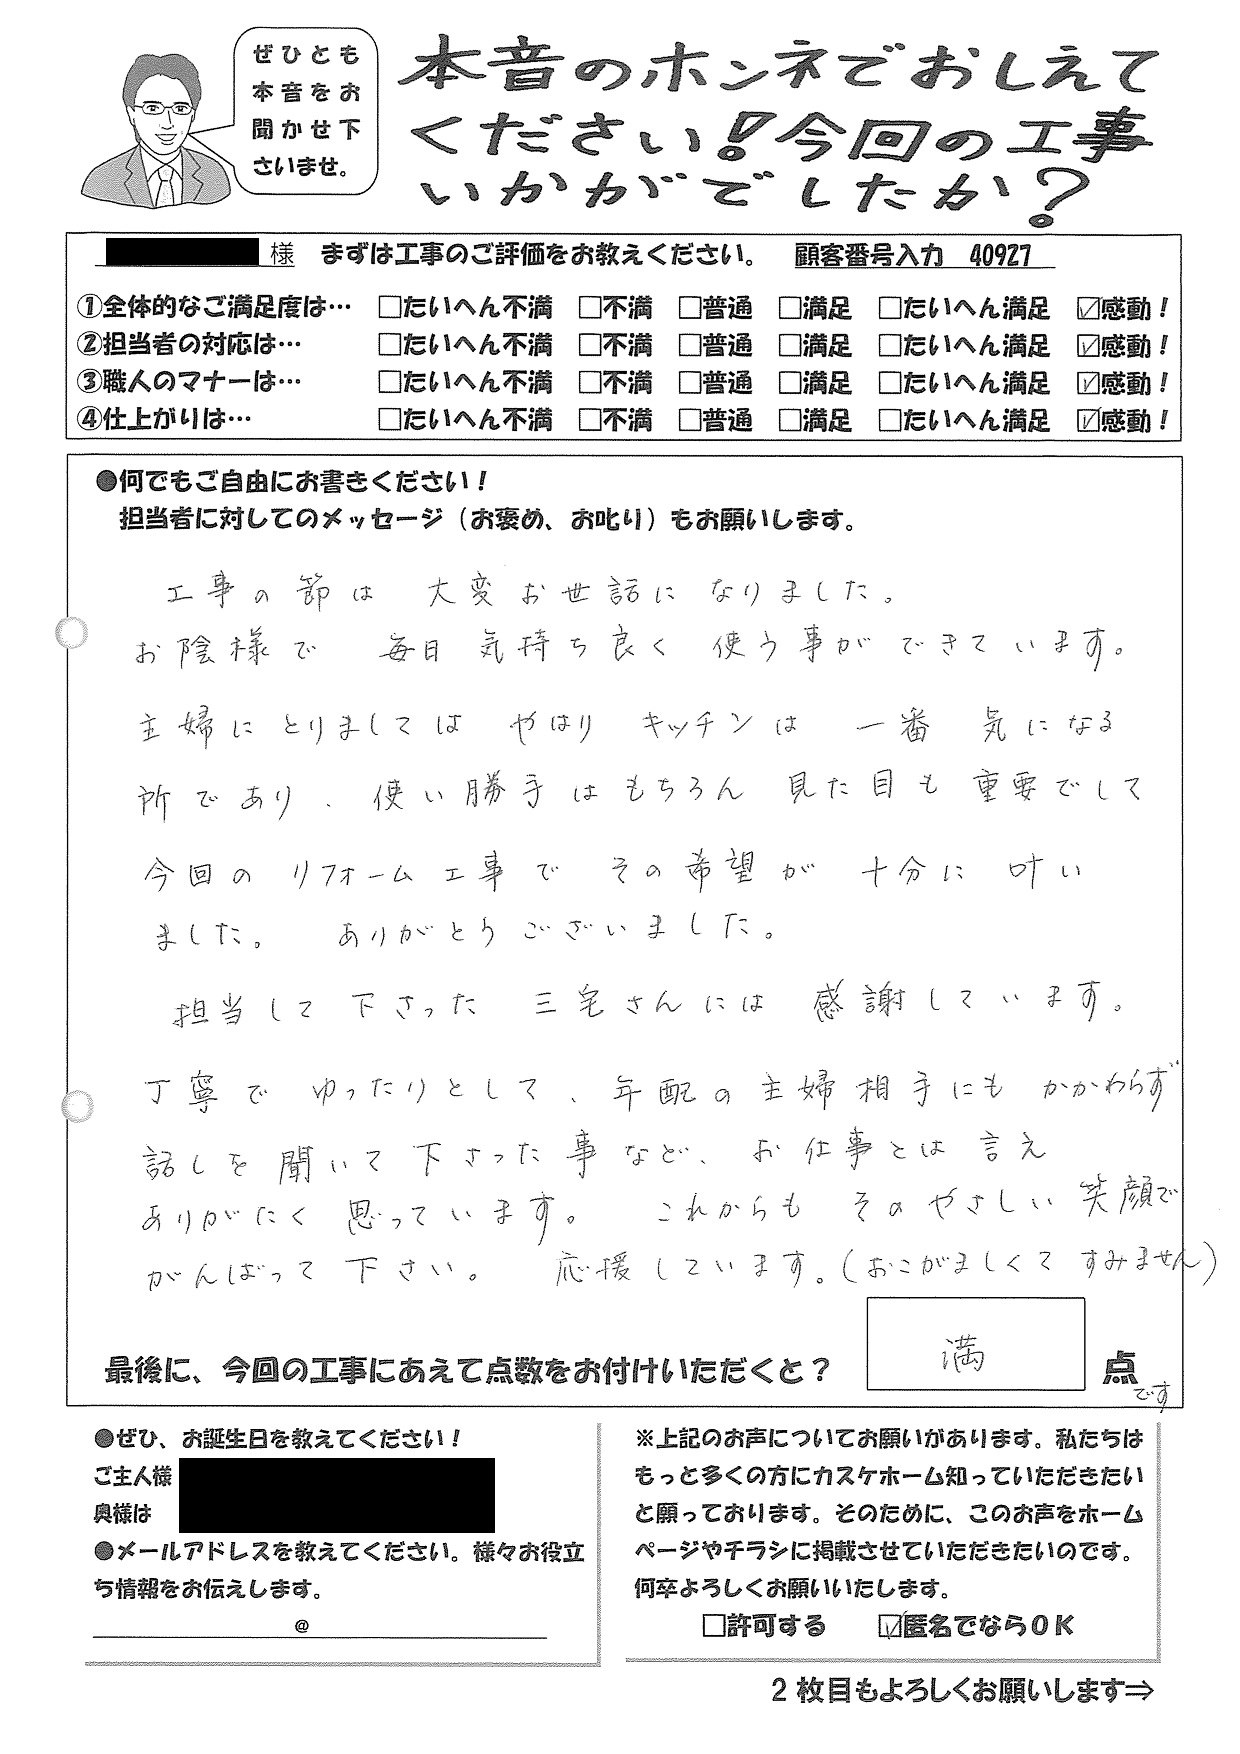 ぜひとも
本音をお
聞かせ下
さいませ。
本音のホンネでおしえて
ください!今回の工事
いかがでしたか?
様 まずは工事のご評価をお教えください。 顧客番号入力 40927
①全体的なご満足度は… □たいへん不満 □不満 □普通 □満足 □たいへん満足 ☑感動!
②担当者の対応は… □たいへん不満 □不満 □普通 □満足 □たいへん満足 ☑感動!
③職人のマナーは… □たいへん不満 □不満 □普通 □満足 □たいへん満足 ☑感動!
④仕上がりは… □たいへん不満 □不満 □普通 □満足 □たいへん満足 ☑感動!
●何でもご自由にお書きください!
担当者に対してのメッセージ(お褒め、お叱り)もお願いします。
工事の節は 大変お世話になりました。
お陰様で 毎日 気持ち良く 使う事ができています。
主婦にとりましては やはり キッチンは 一番 気になる
所であり、使い勝手はもちろん 見た目も 重要でして
今回の リフォーム工事で その希望が 十分に 叶い
ました。 ありがとうございました。
担当して下さった 三宅さんには 感謝しています。
丁寧で ゆったりとして、年配の主婦相手にも かかわらず
話しを聞いて下さった事など、お仕事とは言え
ありがたく 思っています。 これからも そのやさしい笑顔で
がんばって下さい。 応援しています。(おこがましくて すみません)
最後に、今回の工事にあえて点数をお付けいただくと? 満 点
です
●ぜひ、お誕生日を教えてください!
ご主人様
奥様は
●メールアドレスを教えてください。様々お役立
ち情報をお伝えします。
@
※上記のお声についてお願いがあります。私たちは
もっと多くの方にカスケホーム知っていただきたい
と願っております。そのために、このお声をホーム
ページやチラシに掲載させていただきたいのです。
何卒よろしくお願いいたします。
□許可する ☑匿名でならOK
2枚目もよろしくお願いします⇒